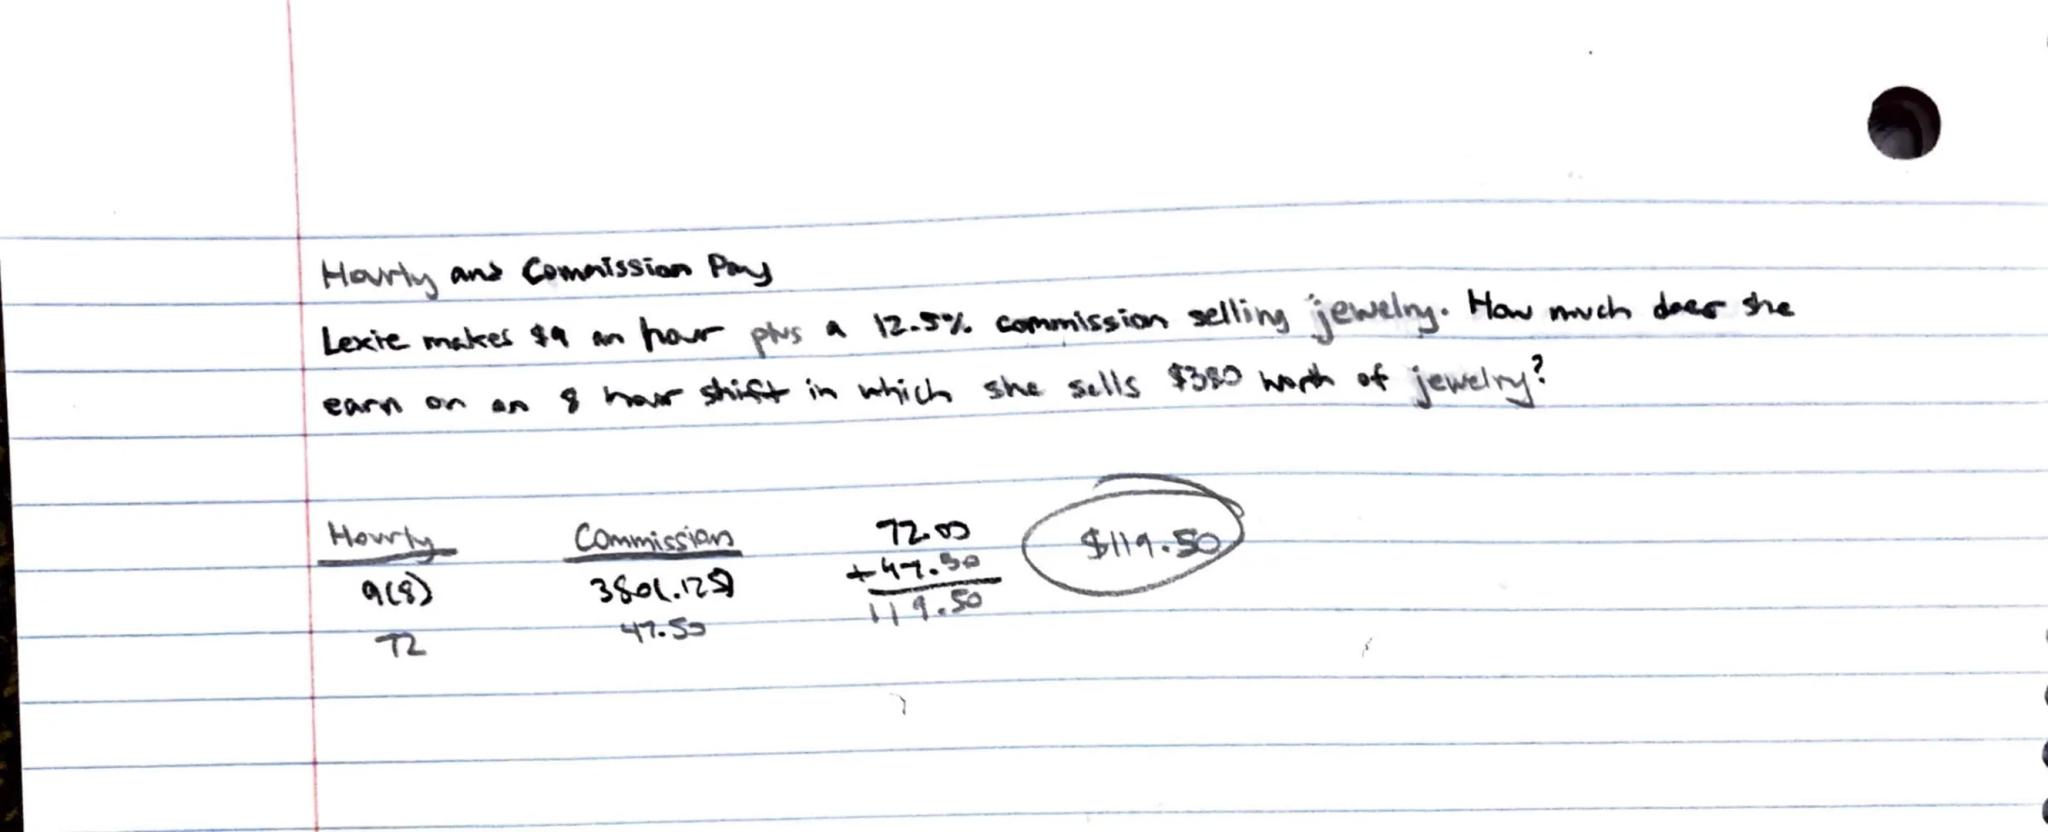 Hourly and Commission Pay
Lexie makes $9 an hour plus a 12.5% commission selling jewelry. How much does she
earn on an 8 hour shift in which she sells $380 worth of jewelry?
Hourly Commission 72.00 $119.50
9(8) 380(.125) +47.50
72 47.50 119.50